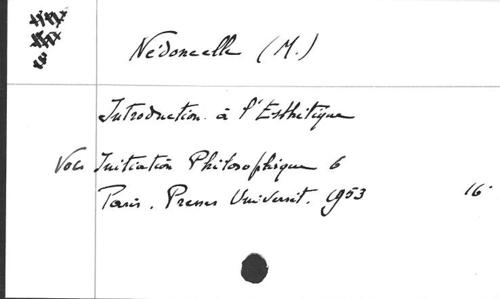 Nédoncelle (M.)
Introduction à l'Esthétique
Vols Initiation Philosophique 6
Paris. Presses Universit. 1953 16°